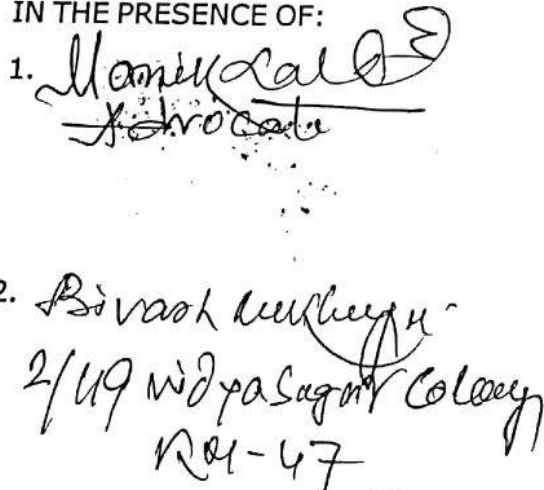 IN THE PRESENCE OF:
1. Manik Lal De
Advocate
2. Bivash Mukherjee
2/49 Vidyasagar Colony
Kol-47